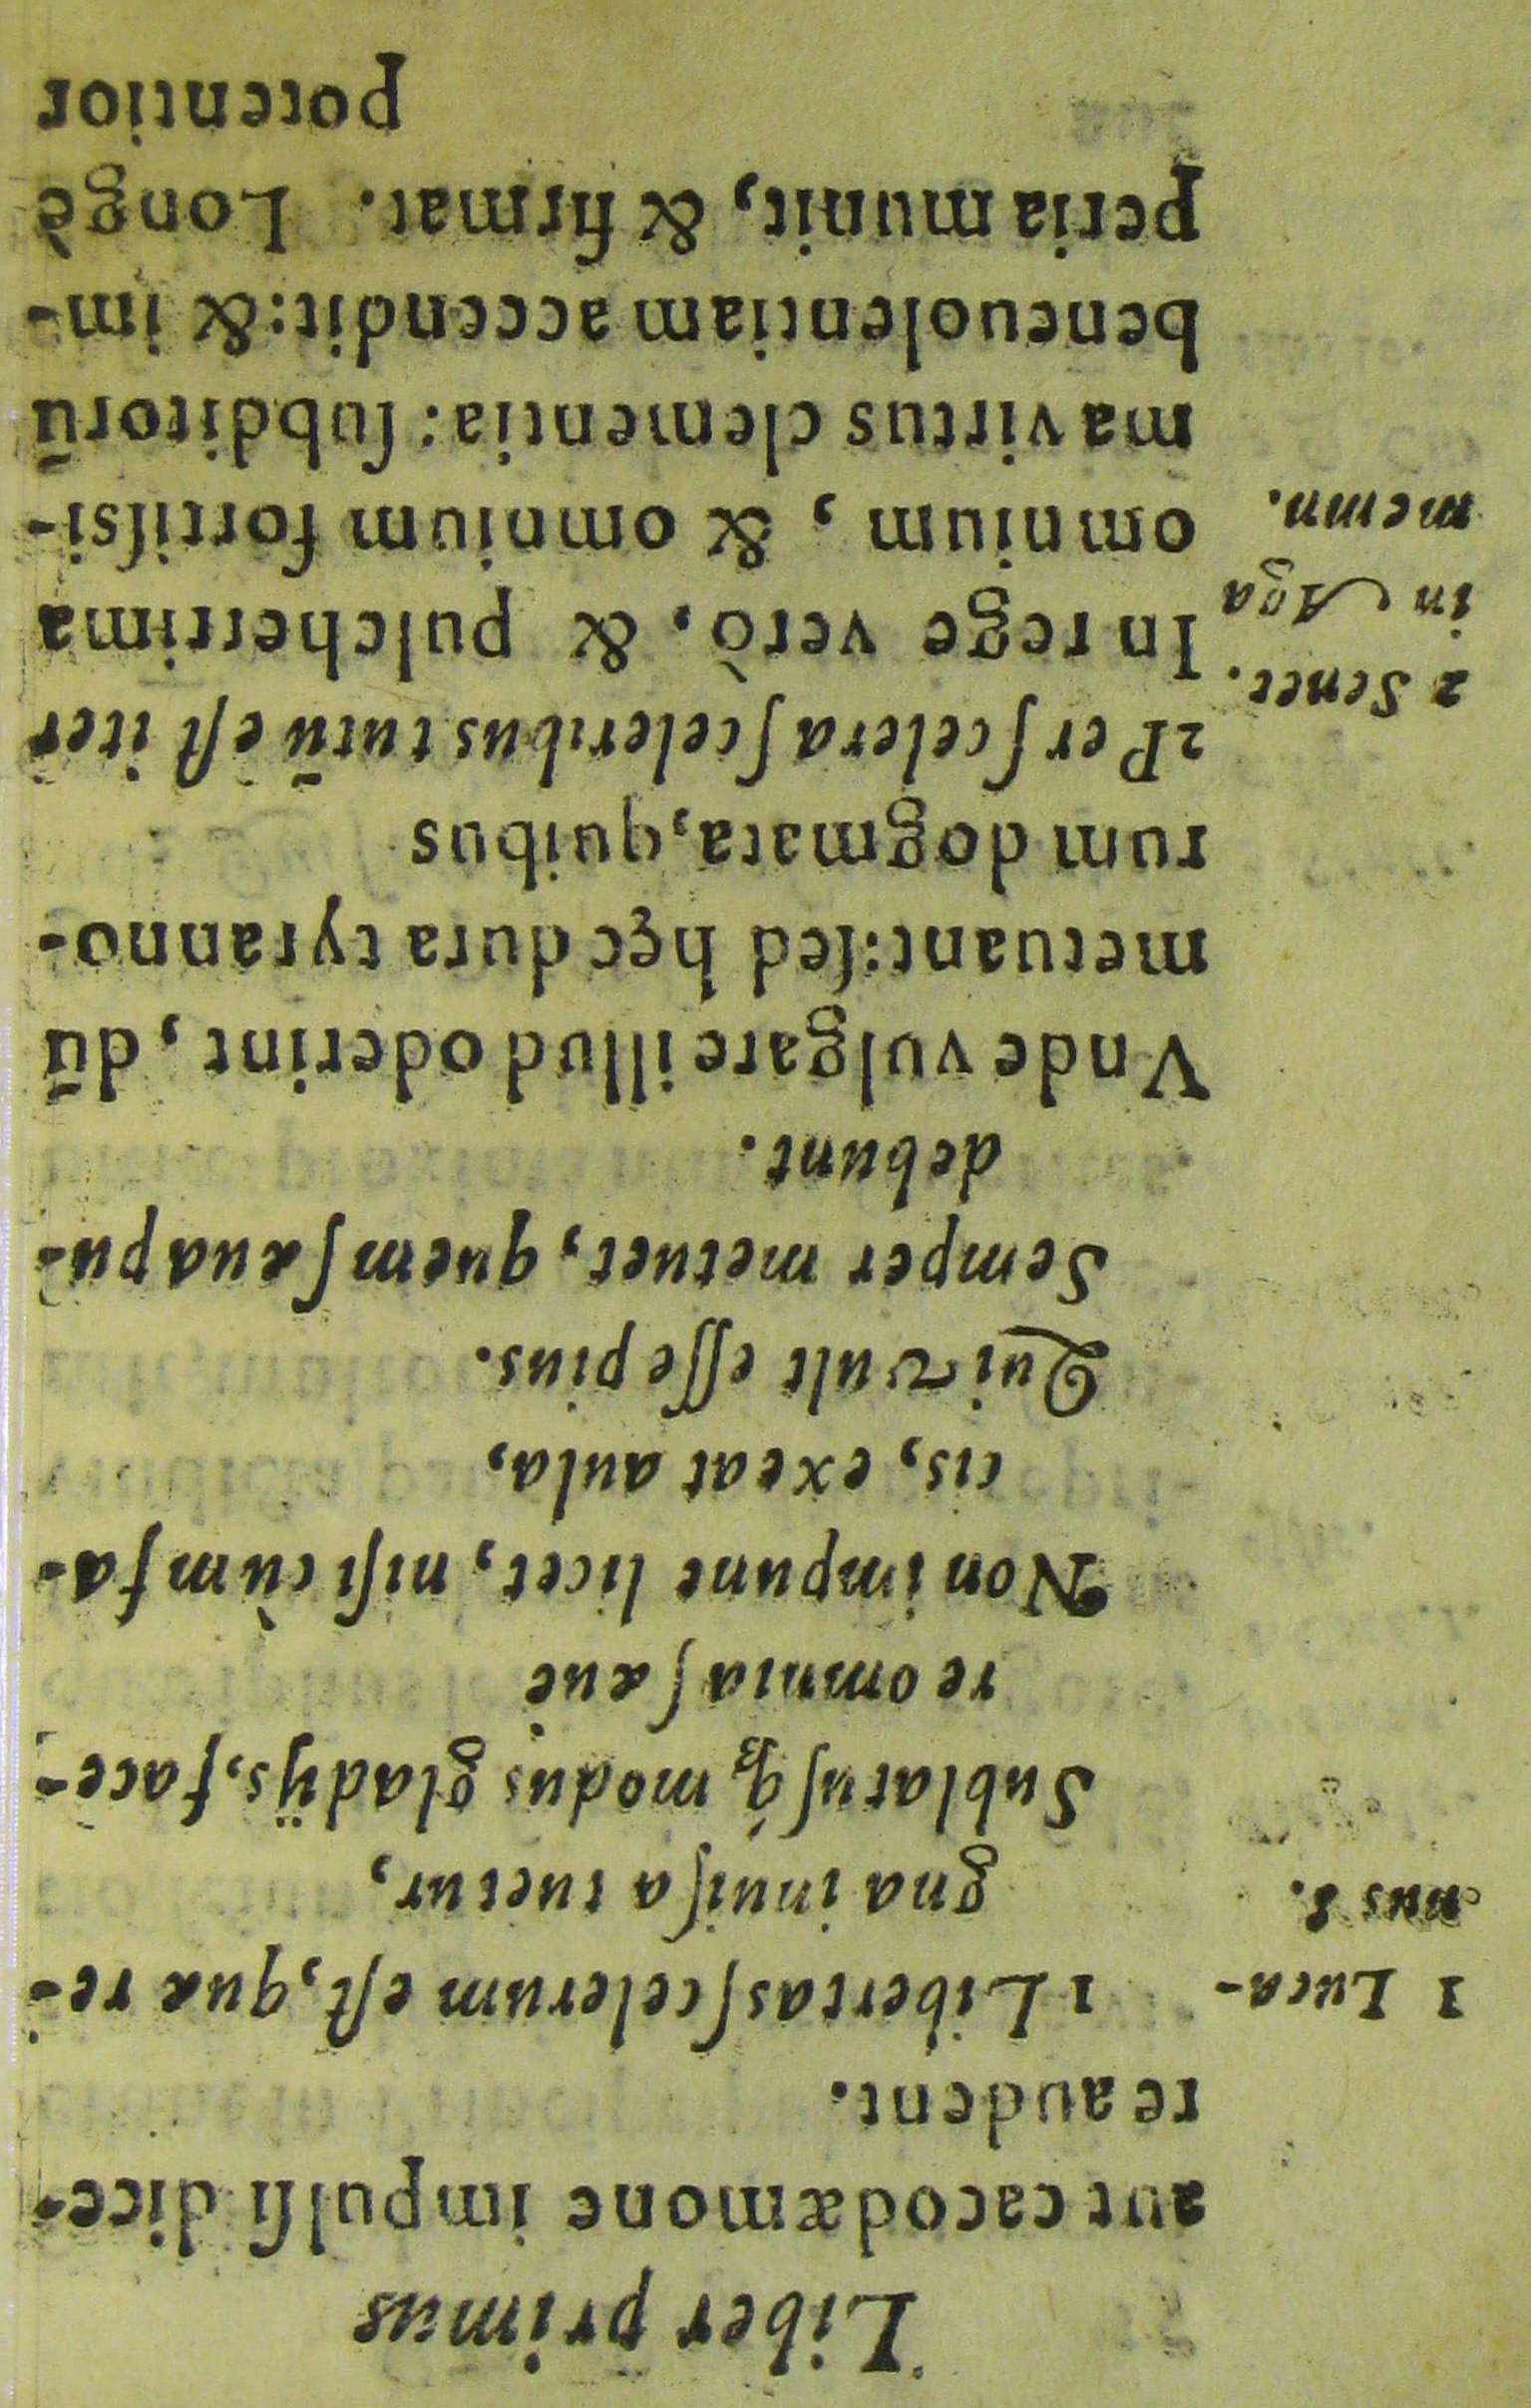 Liber primus
aut cacodæmone impulsi dice-
re audent.
1 Luca-
nus 8.
1 Libertas ſcelerum eſt, quæ re-
gna inuiſa tuetur,
Sublatuſq́ꝫ modus gladijs, face-
re omnia ſæuè
Non impune licet, niſi cùm fa-
cis, exeat aula,
Qui vult eſſe pius.
Semper metuet, quem ſæua pu-
debunt.
Vnde vulgare illud oderint, dū
metuant: ſed hęc dura tyranno-
rum dogmata, quibus
2 Per ſcelera ſceleribus tutū eſt iter
2 Senec.
in Aga
memn.
In rege verò, & pulcherrima
omnium, & omnium fortiſsi-
ma virtus clementia: ſubditorū
beneuolentiam accendit: & im-
peria munit, & firmat. Longè
potentior